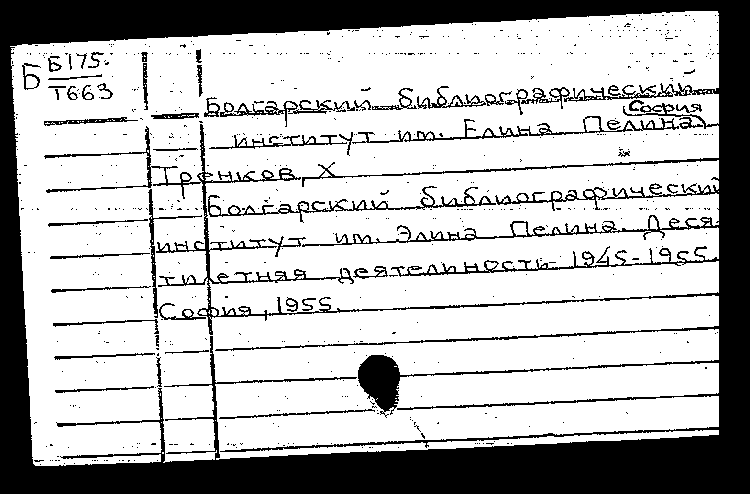 Б Б175.
Т663
Болгарский библиографический
институт им. Елина Пелина (София)
Тренков, Х
Болгарский библиографический
институт им. Элина Пелина. Деся-
тилетняя деятельность 1945-1955.
София, 1955.